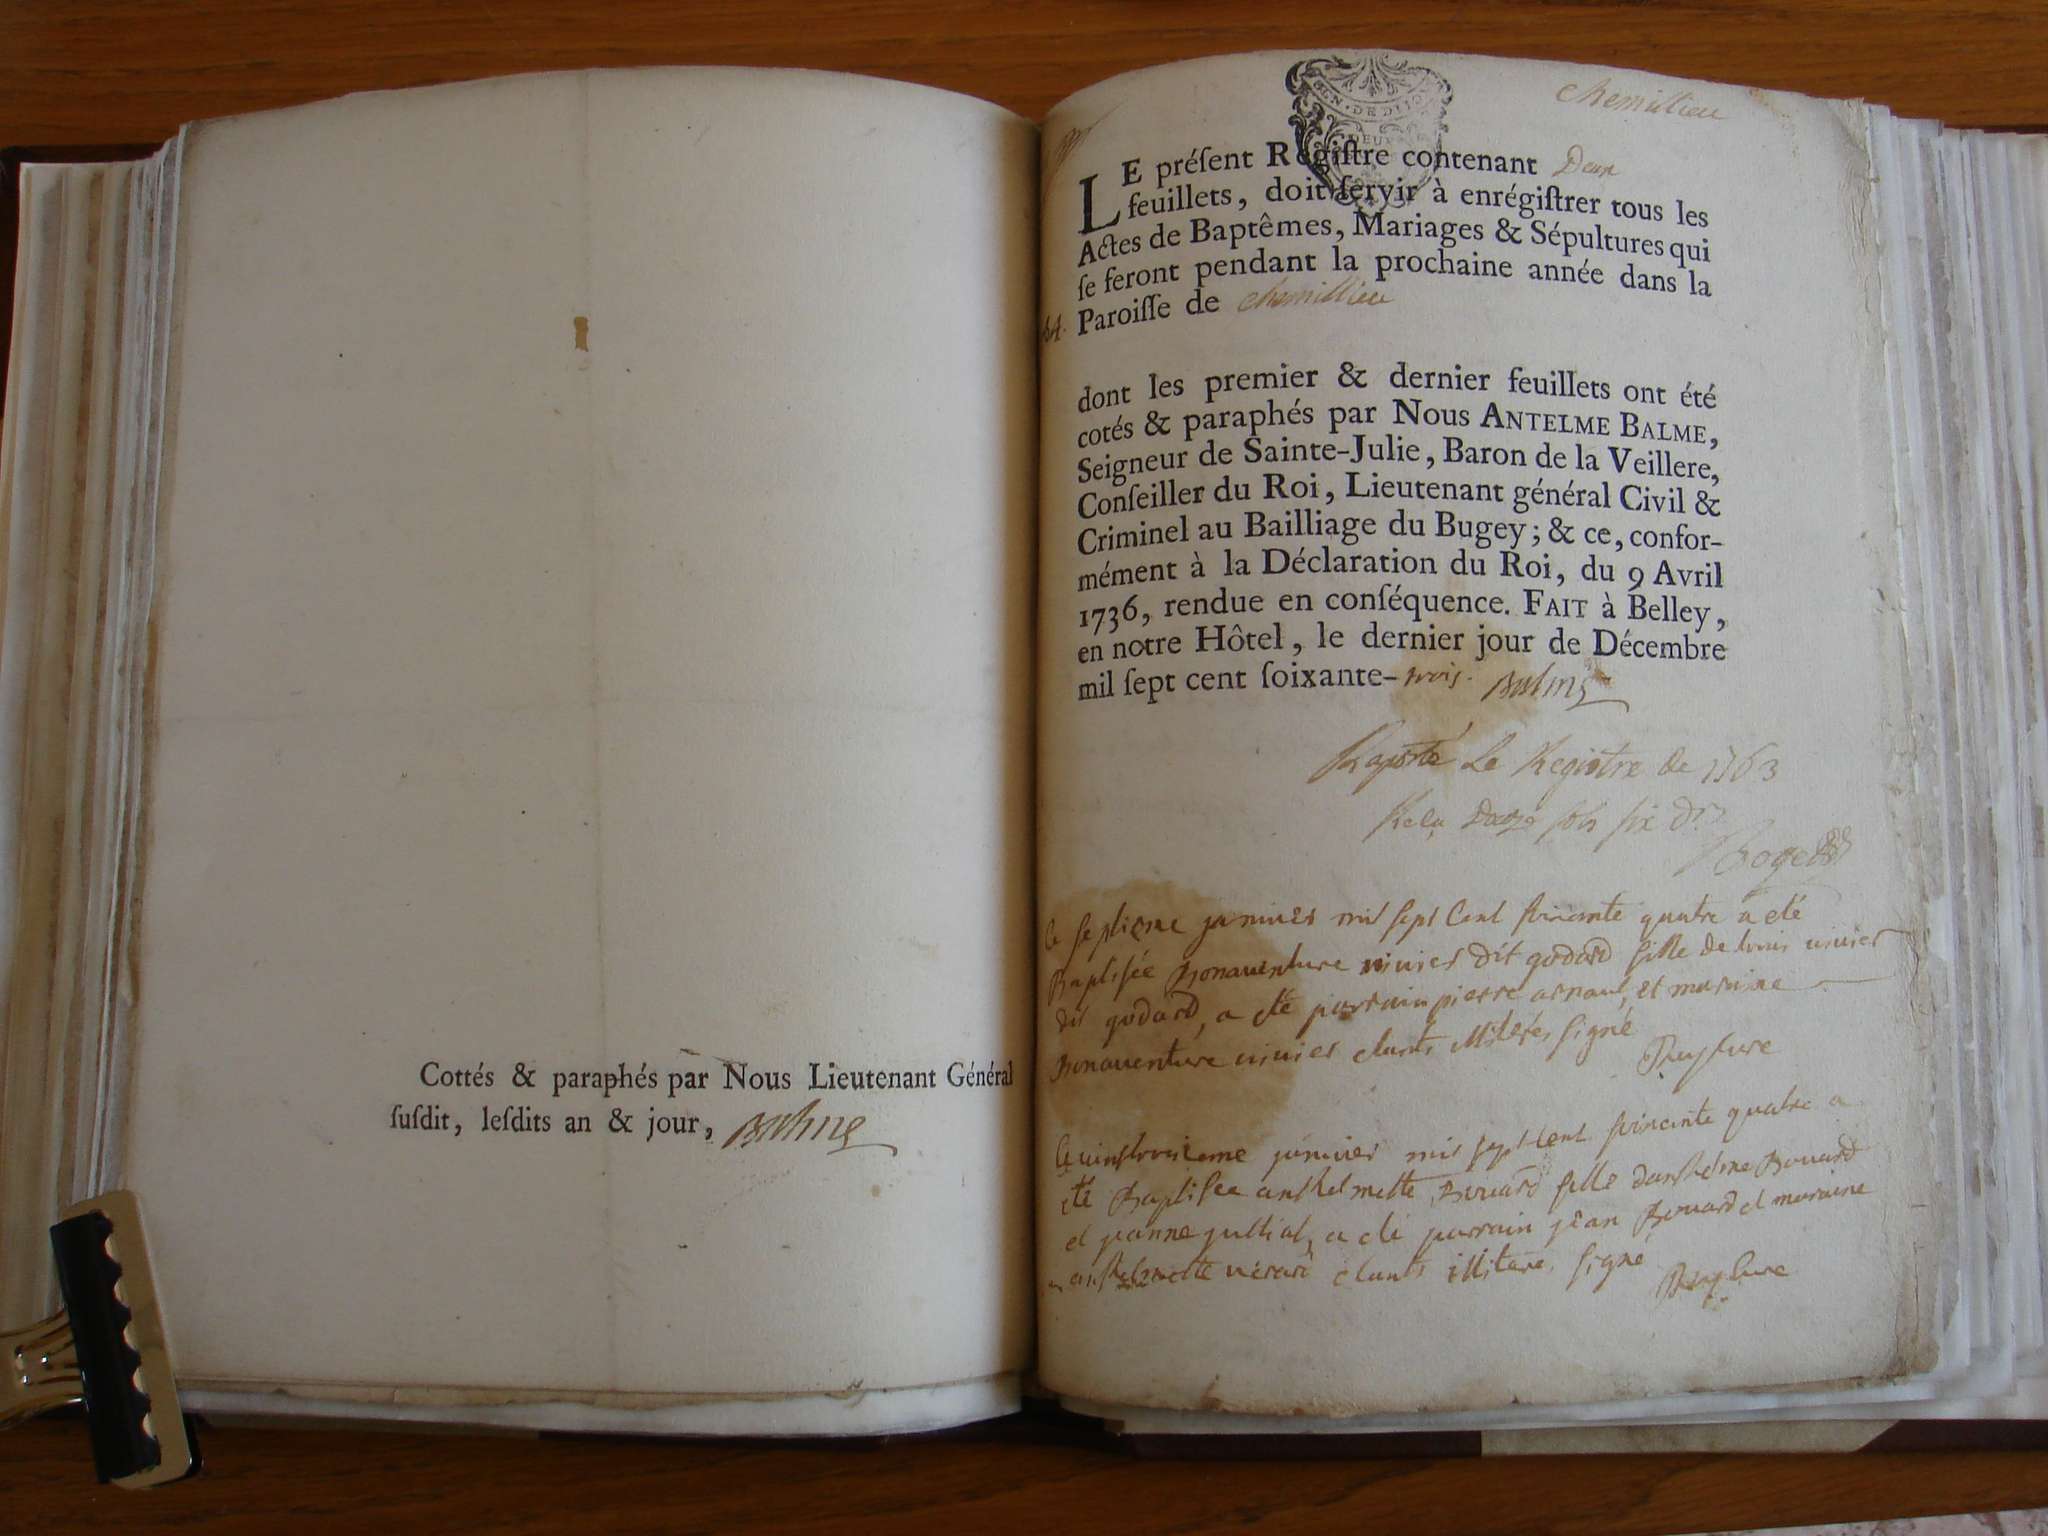 Cottés & paraphés par Nous Lieutenant Général
ſuſdit, leſdits an & jour, Balme
GEN · DE DIJON
DEUX
chemillieu
LE préſent Régiſtre contenant Deux
feuillets, doit ſervir à enrégiſtrer tous les
Actes de Baptêmes, Mariages & Sépultures qui
ſe feront pendant la prochaine année dans la
64. Paroiſſe de chemillieu
dont les premier & dernier feuillets ont été
cotés & paraphés par Nous ANTELME BALME,
Seigneur de Sainte-Julie, Baron de la Veillere,
Conſeiller du Roi, Lieutenant général Civil &
Criminel au Bailliage du Bugey; & ce, confor-
mément à la Déclaration du Roi, du 9 Avril
1736, rendue en conſéquence. FAIT à Belley,
en notre Hôtel, le dernier jour de Décembre
mil ſept cent ſoixante-trois. Balme
Raporté Le Registre de 1763
Reçu Douze sols six drs
Roget
Ce septieme janvier mil sept Cent soixante quatre a eté
Baptisée Bonaventure vivier dit godard fille de louis vivier
dit godard, a eté parrain pierre arnaud, et maraine
Bonaventure vivier etants illiterés signé
Ce vinstroisieme janvier mil sept cent soixante quatre a
eté Baptisée anthelmette Bouard fille danthelme Bouard
et jeanne jullial, a eté parrain jean Bouard et maraine
anthelmette etants illiteré signé